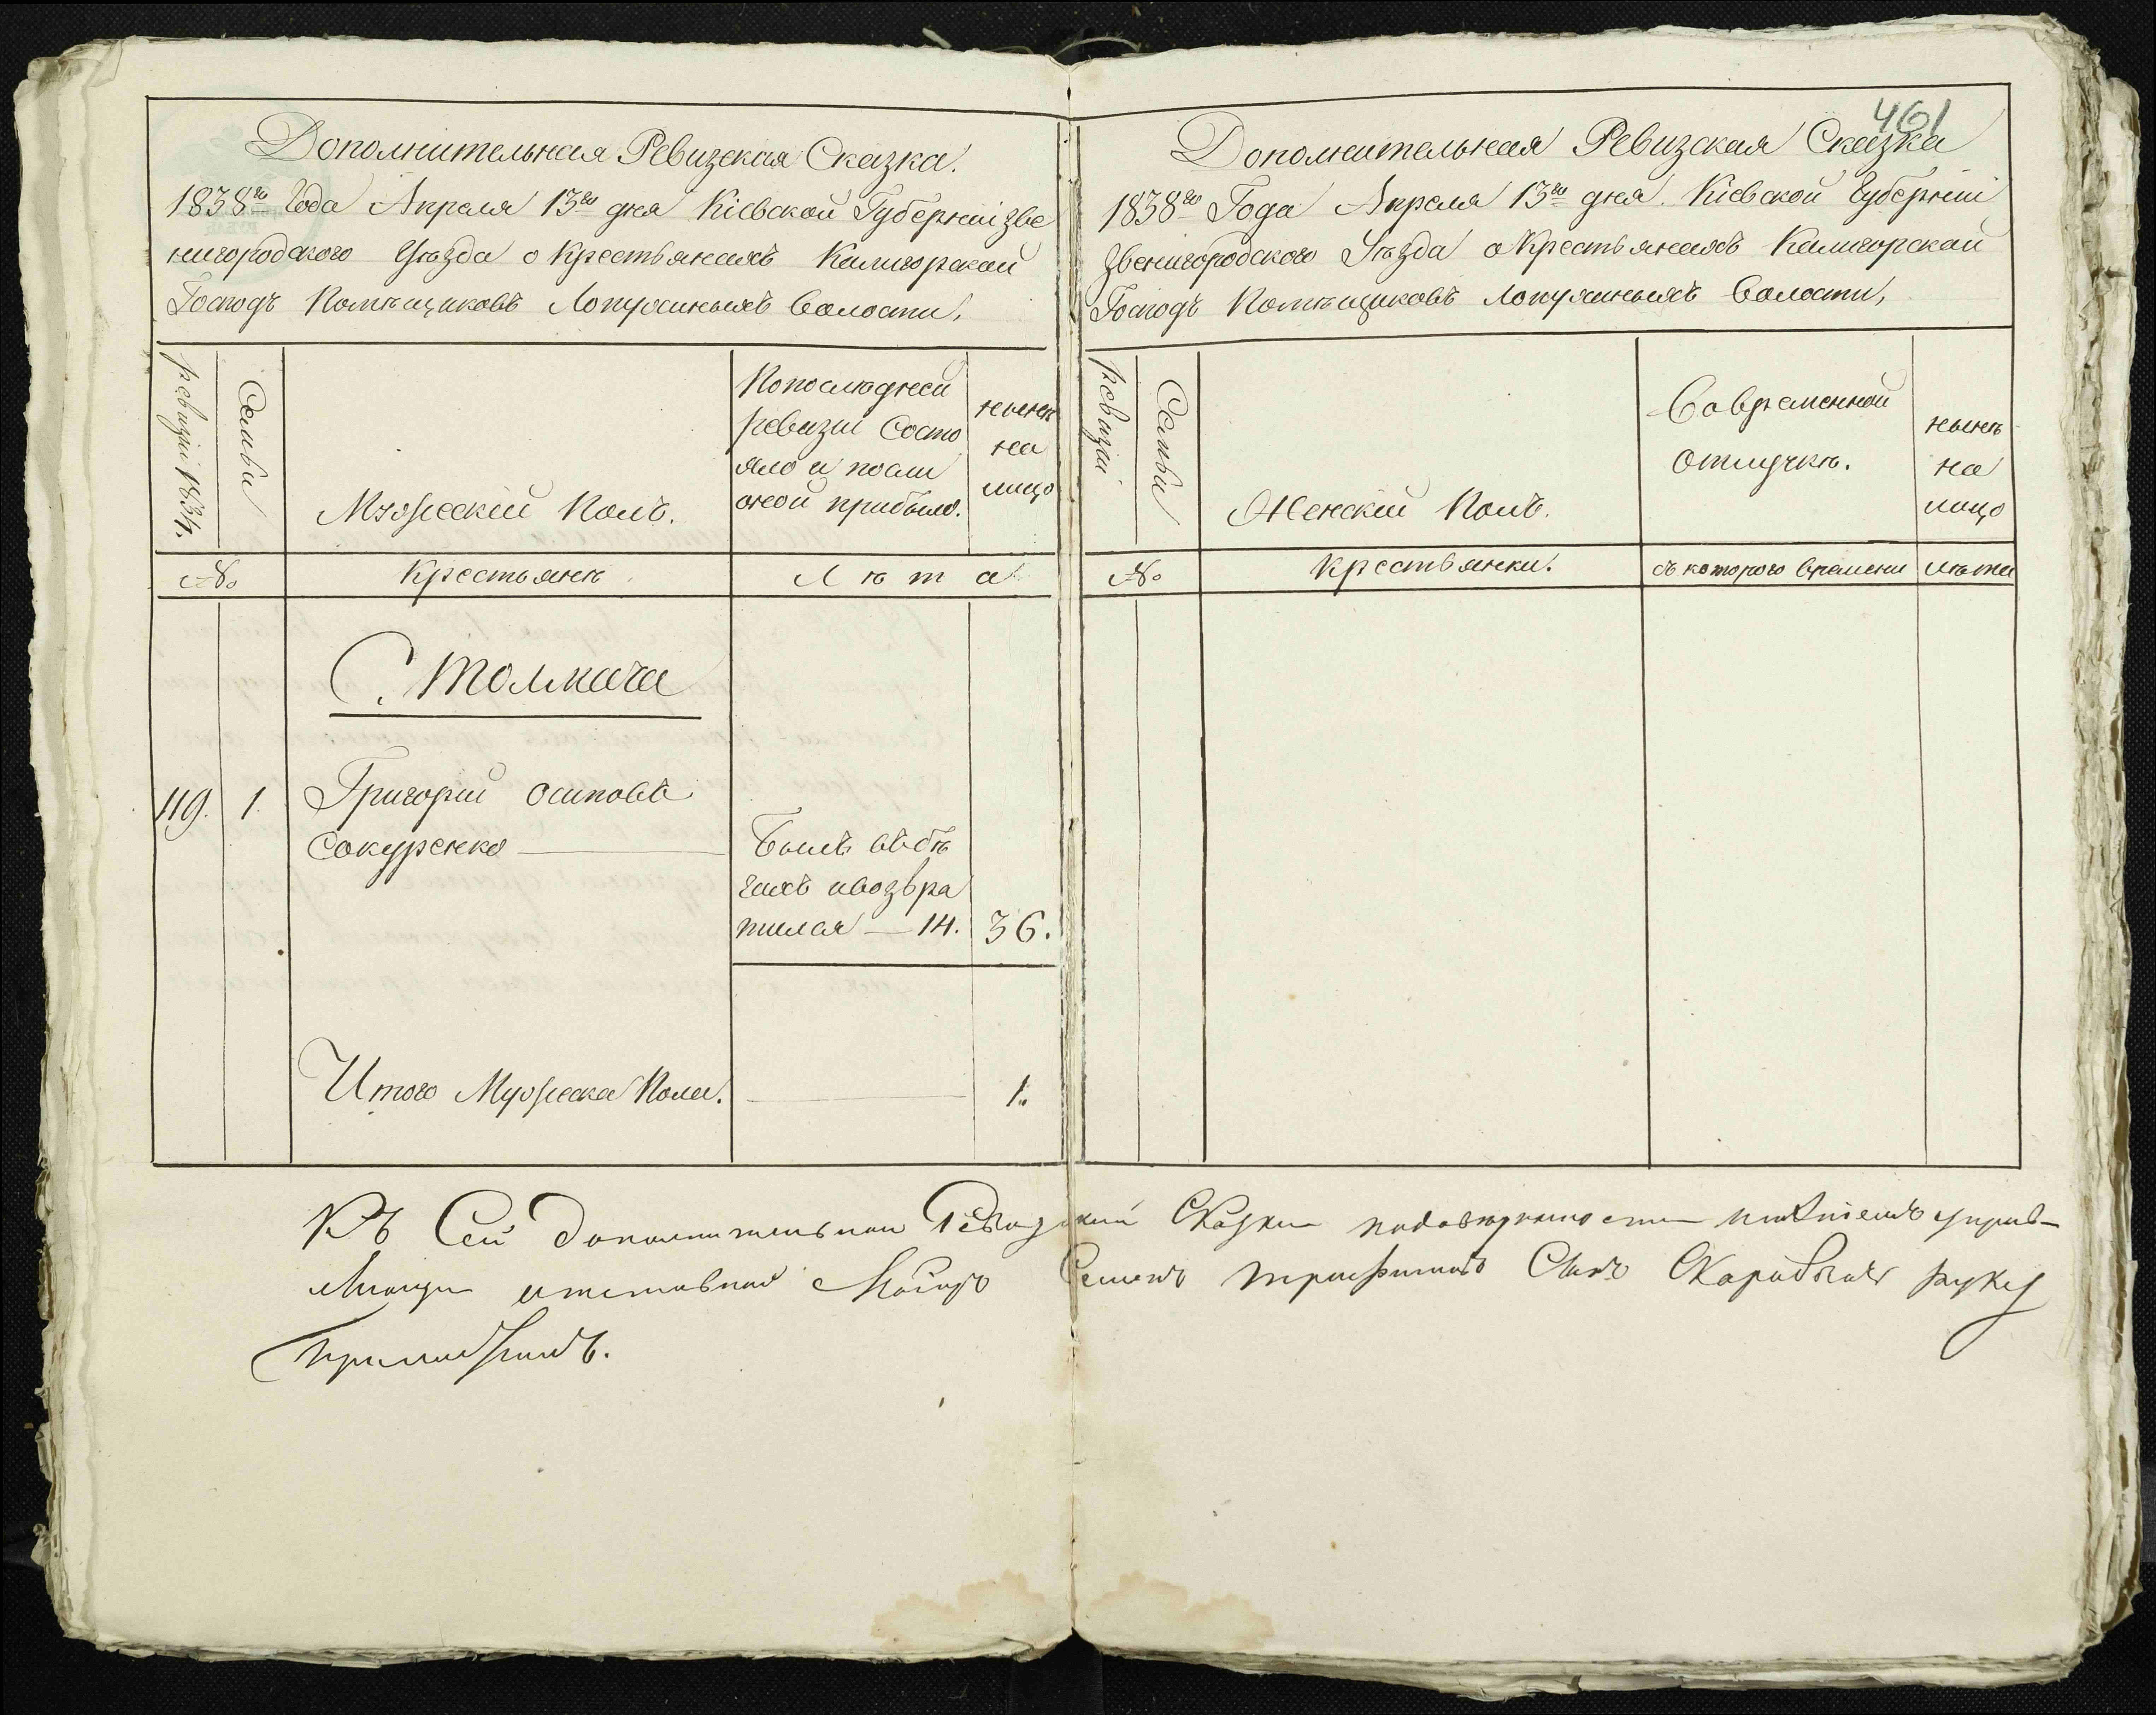 Дополнительная Ревизская Сказка.
1838го Года Апреля 13го дня Кіевской Губерніи Зве
нигородского Уѣзда о Крестьянахъ Калигорской
Господъ Помѣщиковъ Лопухиныхъ Волости,
ревизіи 1834,
Семьи
Мужеский Полъ.
По последней
ревизіи Состо
яло и посли
оной прибыло.
нынѣ
на
лицо
№
Крестьянѣ
Лѣта
С. Толмача
119.
1
Григорій Осиповъ
Сокуренко
Былъ въ бѣ
гахъ и возвра
тился — 14.
36.
Итого Мужеска Пола.
1.
461
Дополнительная Ревизская Сказка
1838го Года Апреля 13го дня. Кіевской Губерніи
Звенигородского Уѣзда о Крестьянахъ Калигорской
Господъ Помѣщиковъ Лопухиныхъ Волости,
ревизіи
Семьи
Женский Полъ.
Во временной
отлучкѣ.
нынѣ
на
лицо
№
Крестьянки.
съ которого времени
лѣта
Къ Сей дополнительной Ревизской Сказки имѣнiемъ управ-
ляющи Маіоръ Семенъ Сынъ руку
приложилъ.